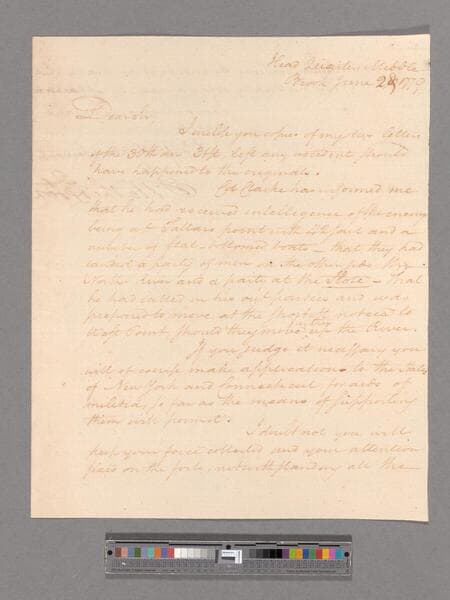 Head Quarters Middle
Brook June 1779
Dear Sir
I inclose you copies of my two letters
of the 30th and 31st left any accident should
have happened to the originals.
Col Clarke has informed me
that he had received intelligence of the enemy
being at Tallars point with 42 sail and a
number of flat-bottomed boats – that they had
landed a party of men on the other side the
North River and a party at the Slote – that
he had called in his out parties and was
prepared to move at the shortest notice to
West Point should they move further up the River.
If you judge it necessary you
will of course make applications to the States
of New York and Connecticut for aids of
militia, so far as the means of supporting
them will permit.
I doubt not you will
keep your force collected and your attention
fixed on the forts, notwithstanding all the